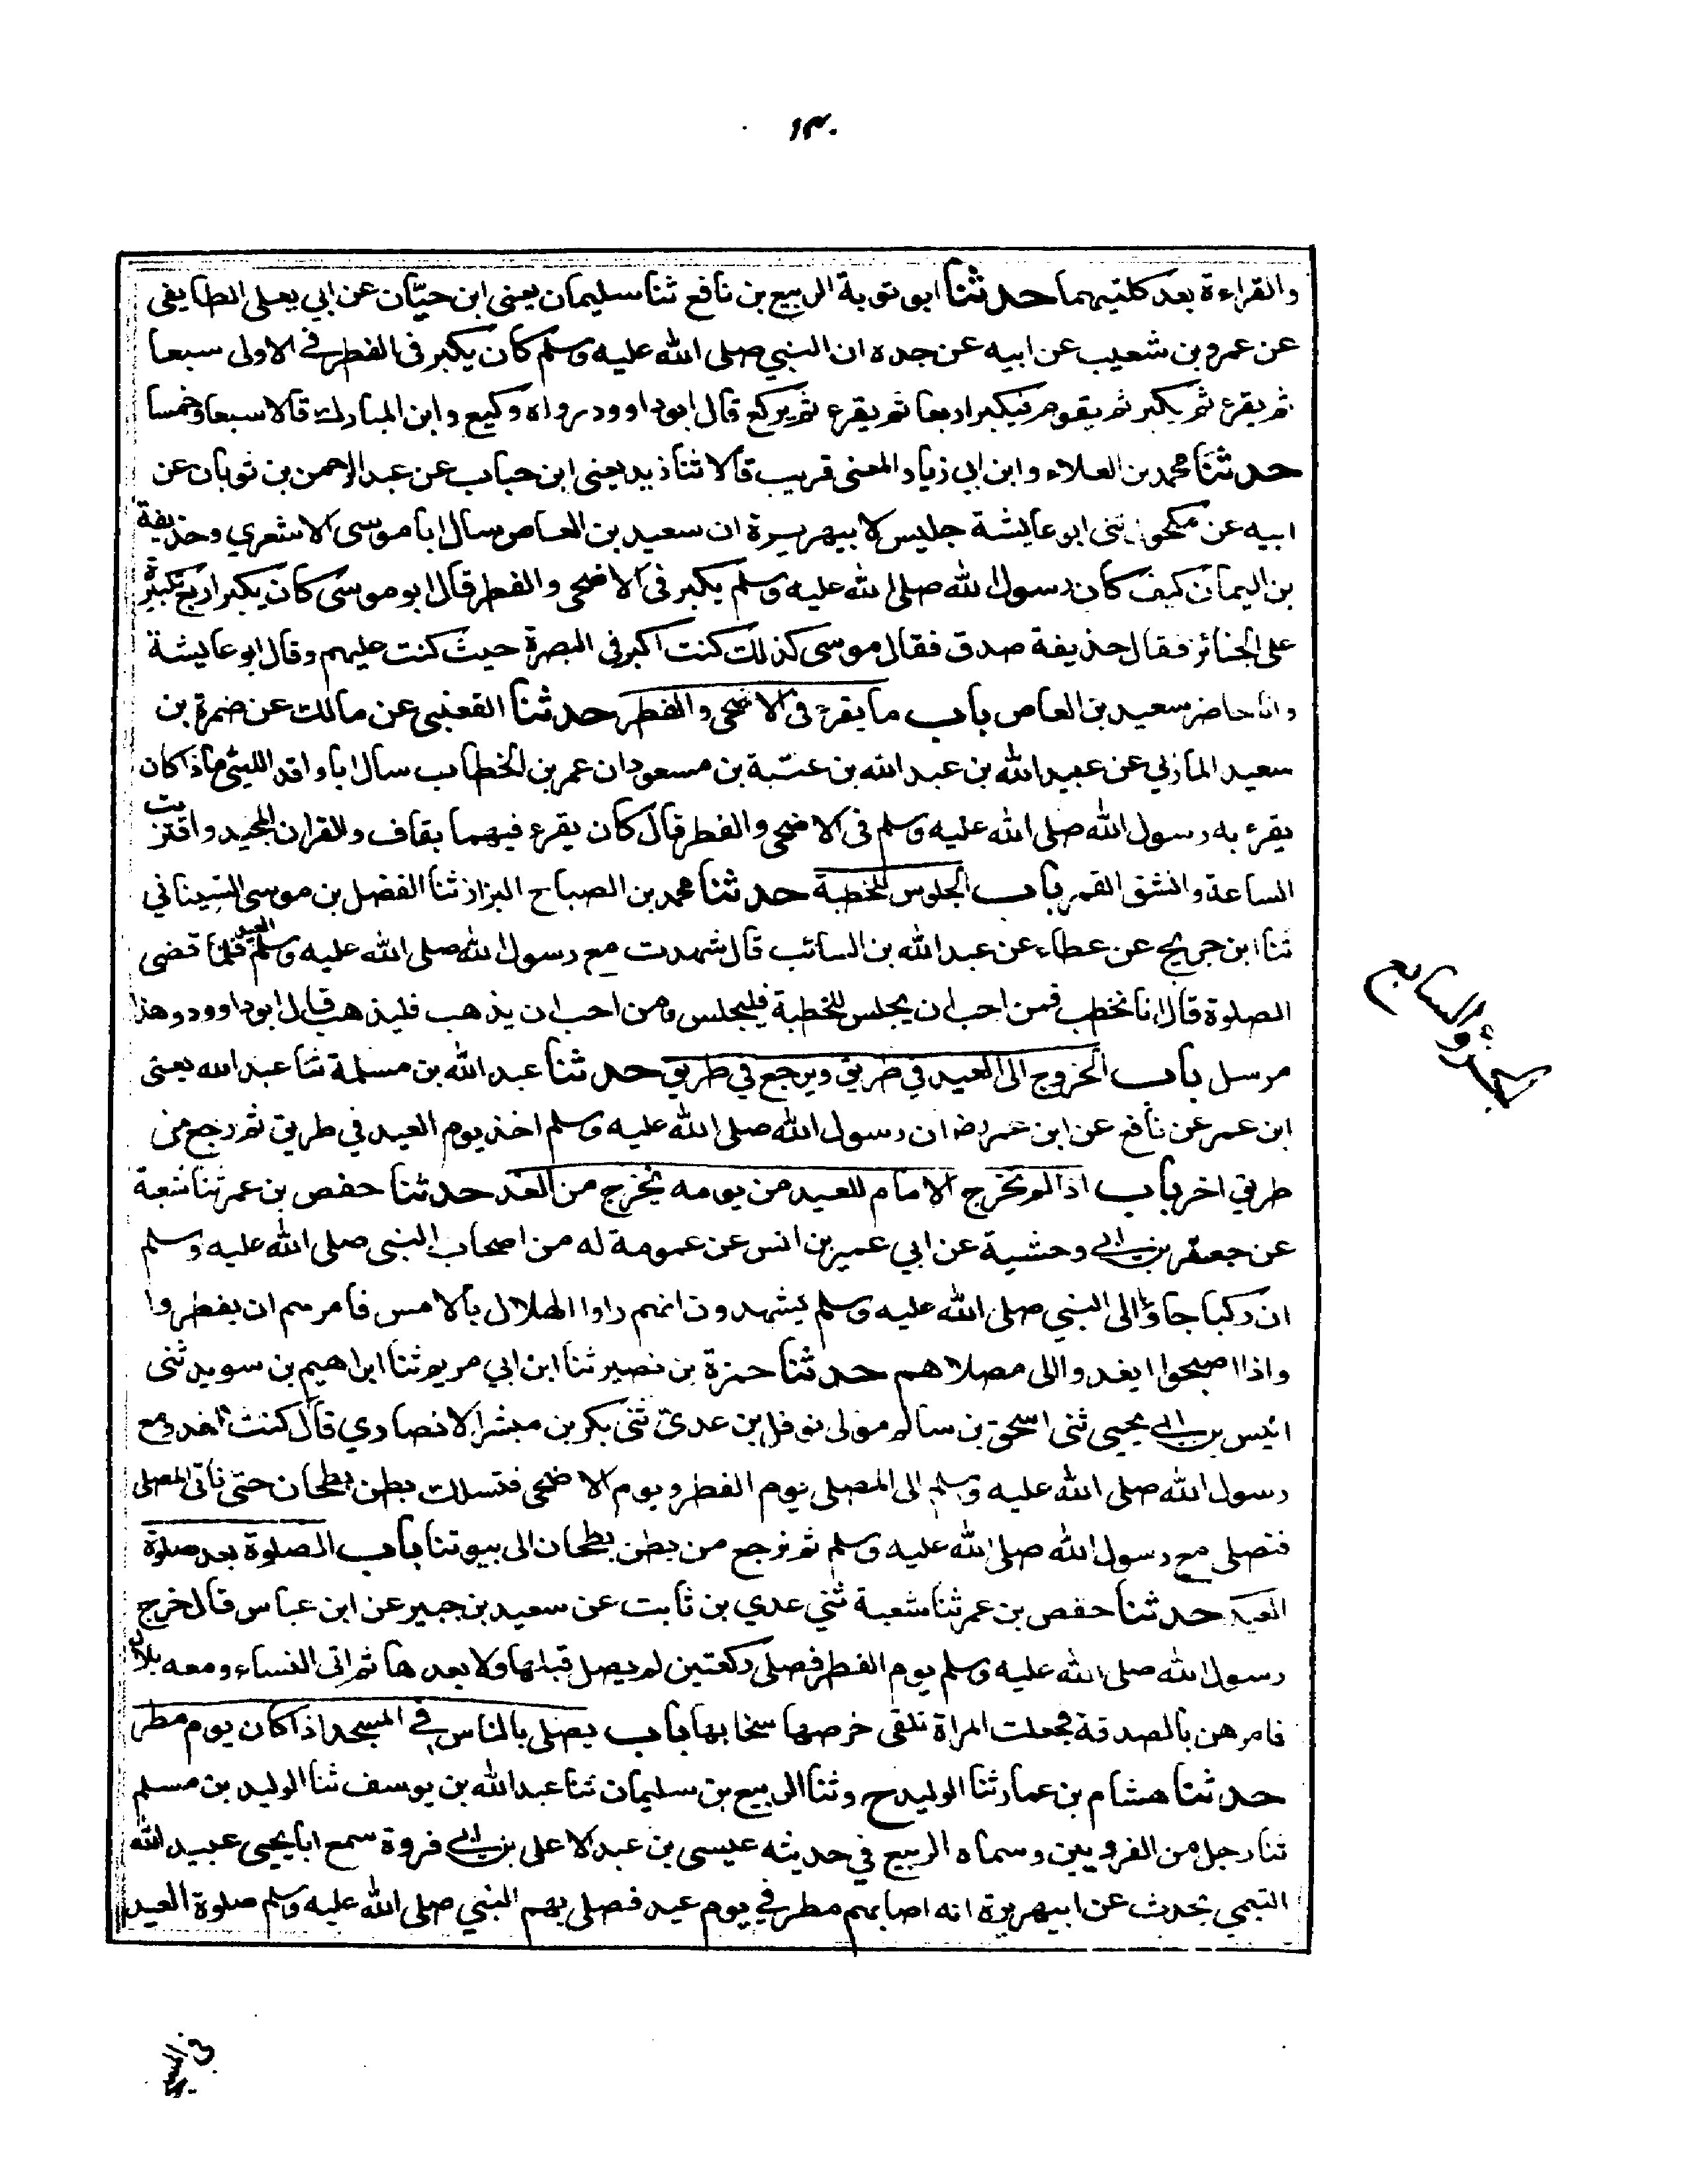 ١٣٠
والقراءة بعد كلتيهما حدثنا ابو توبة الربيع بن نافع ثنا سليمان يعنى ابن حيّان عن ابي يعلى الطايفى
عن عمرو بن شعيب عن ابيه عن جده ان النبي صلى الله عليه وسلم كان يكبر فى الفطر في الاولى سبعا
ثم يقرء ثم يكبر ثم يقوم فيكبر اربعا ثم يقرء ثم يركع قال ابو داوود رواه وكيع وابن المبارك قالا سبعا وخمسا
حدثنا محمد بن العلاء وابن ابي زياد المعنى قريب قالا ثنا زيد يعنى ابن حباب عن عبد الرحمن بن ثوبان عن
ابيه عن مكحول ثنى ابو عايشة جليس لابيهريرة ان سعيد بن العاص سال ابا موسى الاشعري وحذيفة
بن اليمان كيف كان رسول الله صلى الله عليه وسلم يكبر فى الاضحى والفطر قال ابو موسى كان يكبر اربع تكبيرة
على الجنائز فقال حذيفة صدق فقال موسى كذلك كنت اكبر فى البصرة حيث كنت عليهم وقال ابو عايشة
وانا حاضر سعيد بن العاص باب ما يقرء فى الاضحى والفطر حدثنا القعنبى عن مالك عن ضمرة بن
سعيد المازني عن عبيد الله بن عبد الله بن عتبة بن مسعود ان عمر بن الخطاب سال ابا واقد الليثى ماذا كان
يقرء به رسول الله صلى الله عليه وسلم فى الاضحى والفطر قال كان يقرء فيهما بقاف والقران المجيد واقتربت
الساعة وانشق القمر باب الجلوس للخطبة حدثنا محمد بن الصباح البزاز ثنا الفضل بن موسى السيناني
ثنا ابن جريج عن عطاء عن عبد الله بن السائب قال شهدت مع رسول الله صلى الله عليه وسلم العيد فلما قضى
الصلوة قال انا نخطب فمن احب ان يجلس للخطبة فليجلس ومن احب ان يذهب فليذهب قال ابو داوود وهذا
مرسل باب الخروج الى العيد في طريق ويرجع في طريق حدثنا عبد الله بن مسلمة ثنا عبد الله يعنى
ابن عمر عن نافع عن ابن عمر رضـ ان رسول الله صلى الله عليه وسلم اخذ يوم العيد في طريق ثم رجع من
طريق اخر باب اذا لم يخرج الامام للعيد من يومه يخرج من الغد حدثنا حفص بن عمر ثنا شعبة
عن جعفر بن ابي وحشية عن ابي عمير بن انس عن عمومة له من اصحاب النبى صلى الله عليه وسلم
ان ركبا جاؤا الى النبي صلى الله عليه وسلم يشهدون انهم راوا الهلال بالامس فامرهم ان يفطروا
واذا اصبحوا يغدوا الى مصلاهم حدثنا حمزة بن نصير ثنا ابن ابي مريم ثنا ابراهيم بن سويد ثنى
انيس بن ابي يحيى ثنى اسحق بن سالم مولى نوفل بن عدى ثنى بكر بن مبشر الانصاري قال كنت اغدو مع
رسول الله صلى الله عليه وسلم الى المصلى يوم الفطر ويوم الاضحى فنسلك بطن بطحان حتى ناتى المصلى
فنصلى مع رسول الله صلى الله عليه وسلم ثم نرجع من بطن بطحان الى بيوتنا باب الصلوة بعد صلوة
العيد حدثنا حفص بن عمر ثنا شعبة ثني عدي بن ثابت عن سعيد بن جبير عن ابن عباس قال خرج
رسول الله صلى الله عليه وسلم يوم الفطر فصلى ركعتين لم يصل قبلها ولا بعدها ثم اتى النساء ومعه بلال
فامرهن بالصدقة فجعلت المراة تلقى خرصها سخابها باب يصلى بالناس في المسجد اذا كان يوم مطر
حدثنا هشام بن عمار ثنا الوليد ح وثنا الربيع بن سليمان ثنا عبد الله بن يوسف ثنا الوليد بن مسلم
ثنا رجل من الفرويين وسماه الربيع في حديثه عيسى بن عبد الاعلى بن ابي فروة سمع ابا يحيى عبيد الله
التيمي يحدث عن ابيهريرة انه اصابهم مطر في يوم عيد فصلى بهم النبي صلى الله عليه وسلم صلوة العيد
الجزؤ السابع